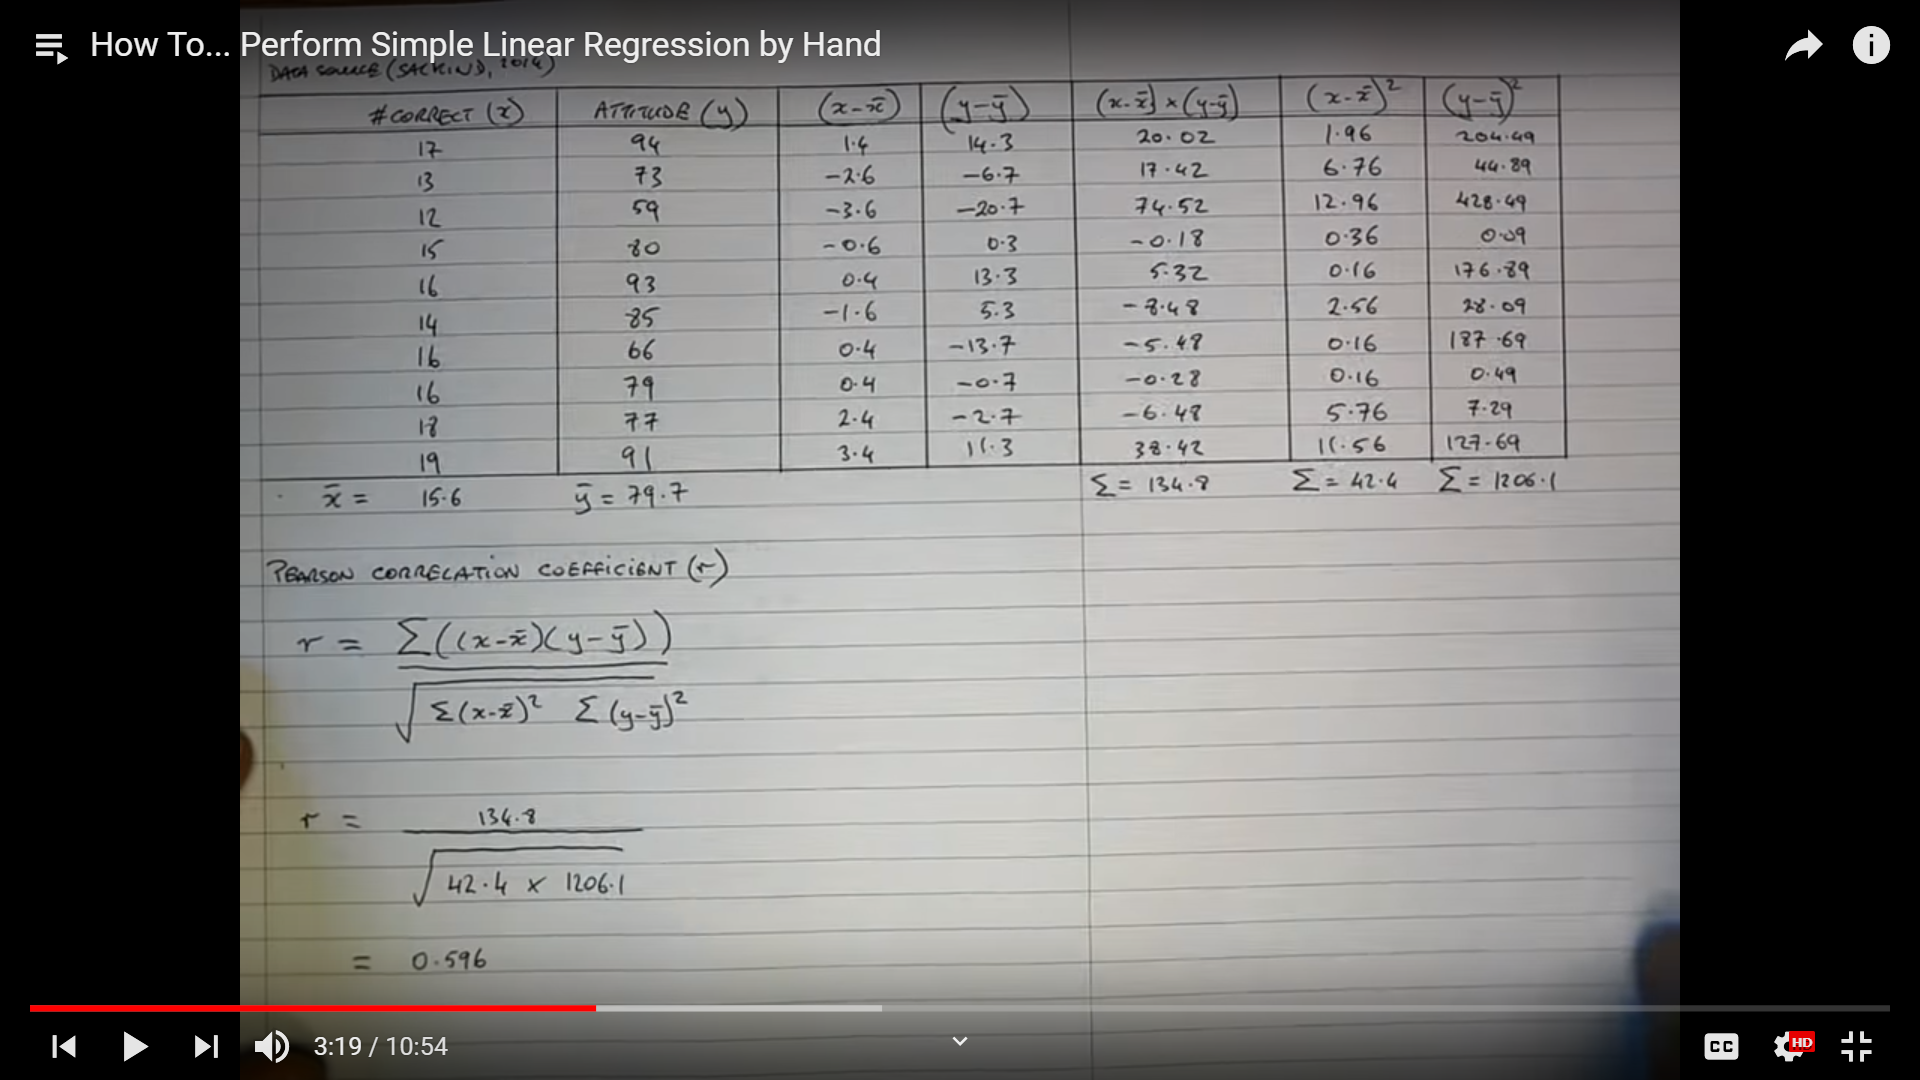 How To... Perform Simple Linear Regression by Hand
DATA SOURCE (SALKIND, 2014)
#CORRECT (x) ATTITUDE (y) (x-x̄) (y-ȳ) (x-x̄)×(y-ȳ) (x-x̄)² (y-ȳ)²
17 94 1.4 14.3 20.02 1.96 204.49
13 73 -2.6 -6.7 17.42 6.76 44.89
12 59 -3.6 -20.7 74.52 12.96 428.49
15 80 -0.6 0.3 -0.18 0.36 0.09
16 93 0.4 13.3 5.32 0.16 176.89
14 85 -1.6 5.3 -8.48 2.56 28.09
16 66 0.4 -13.7 -5.48 0.16 187.69
16 79 0.4 -0.7 -0.28 0.16 0.49
18 77 2.4 -2.7 -6.48 5.76 7.29
19 91 3.4 11.3 38.42 11.56 127.69
x̄ = 15.6 ȳ = 79.7 Σ = 134.8 Σ = 42.4 Σ = 1206.1
PEARSON CORRELATION COEFFICIENT (r)
r = Σ((x-x̄)(y-ȳ))
√Σ(x-x̄)² Σ(y-ȳ)²
r = 134.8
√42.4 × 1206.1
= 0.596
3:19 / 10:54
CC
HD